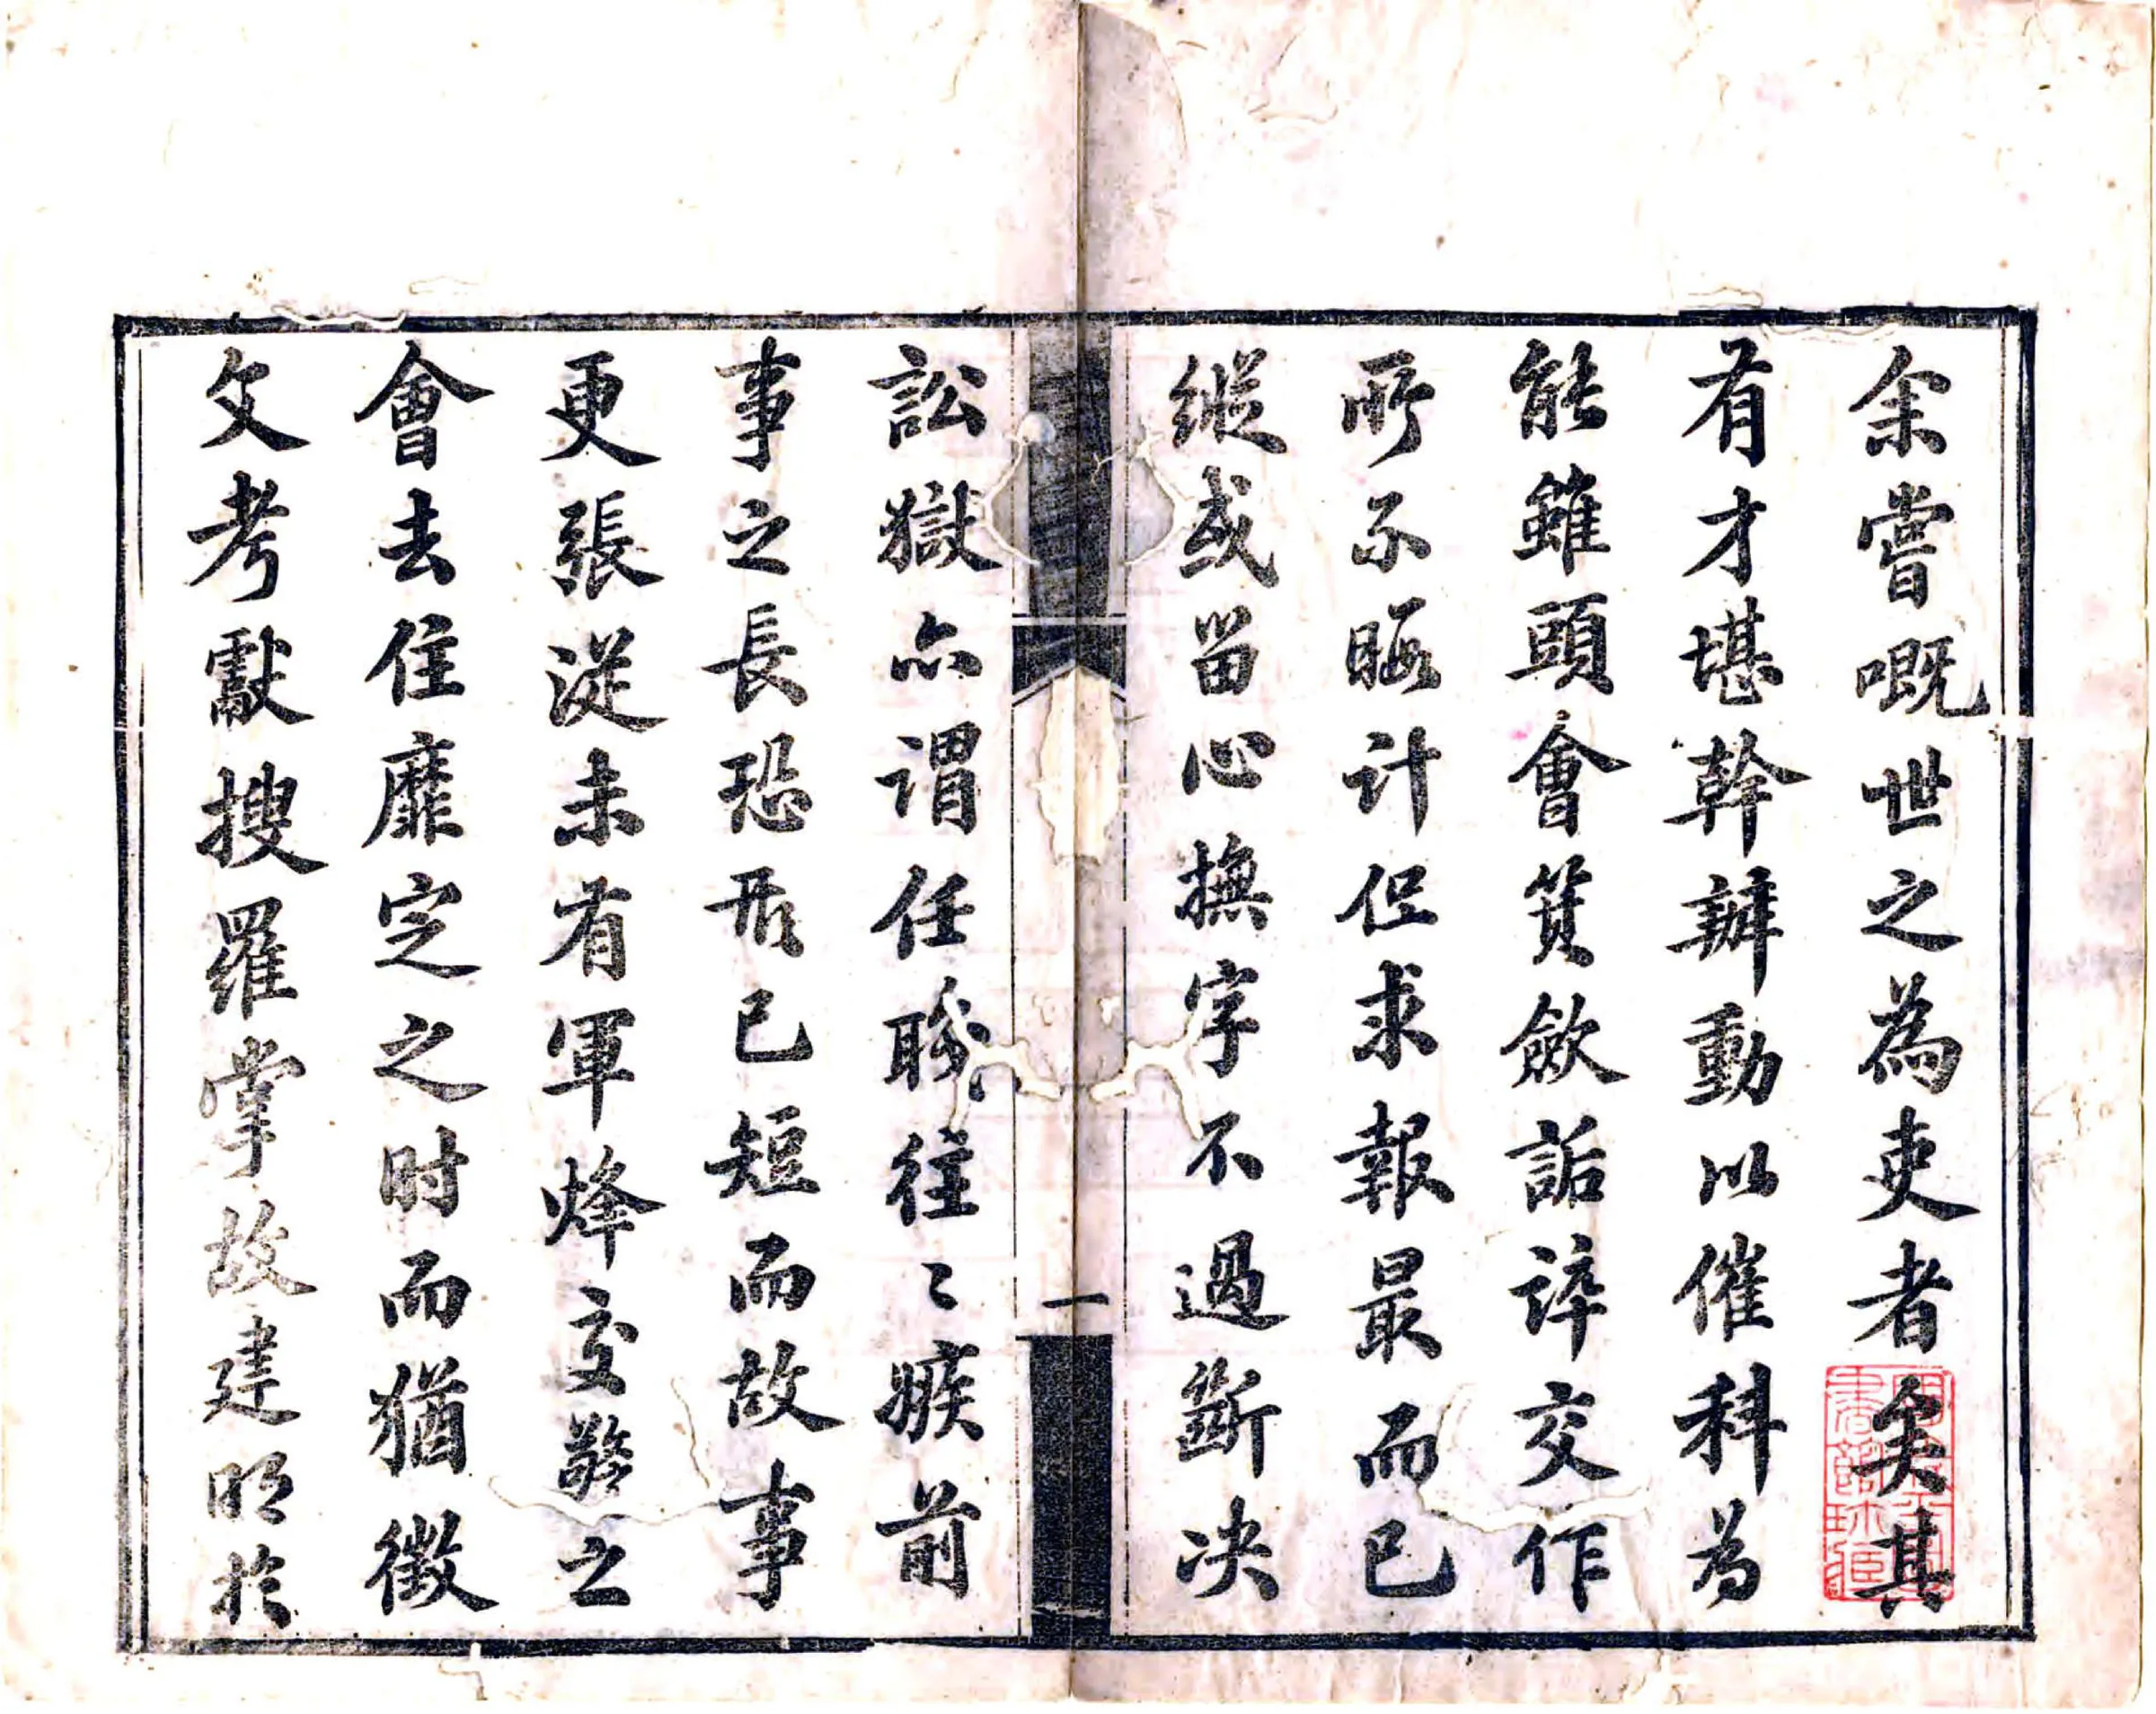 余嘗嘅世之為吏者矣其
有才堪幹辦動以催科為
能雖頭會箕歛詬誶交作
所不暇計但求報最而已
縱或留心撫字不過斷决
訟獄亦謂任職往〻嫉前
事之長恐形己短而故事
更張從未有軍烽交警之
會去住靡定之时而猶徵
文考獻搜羅掌故建明於
一